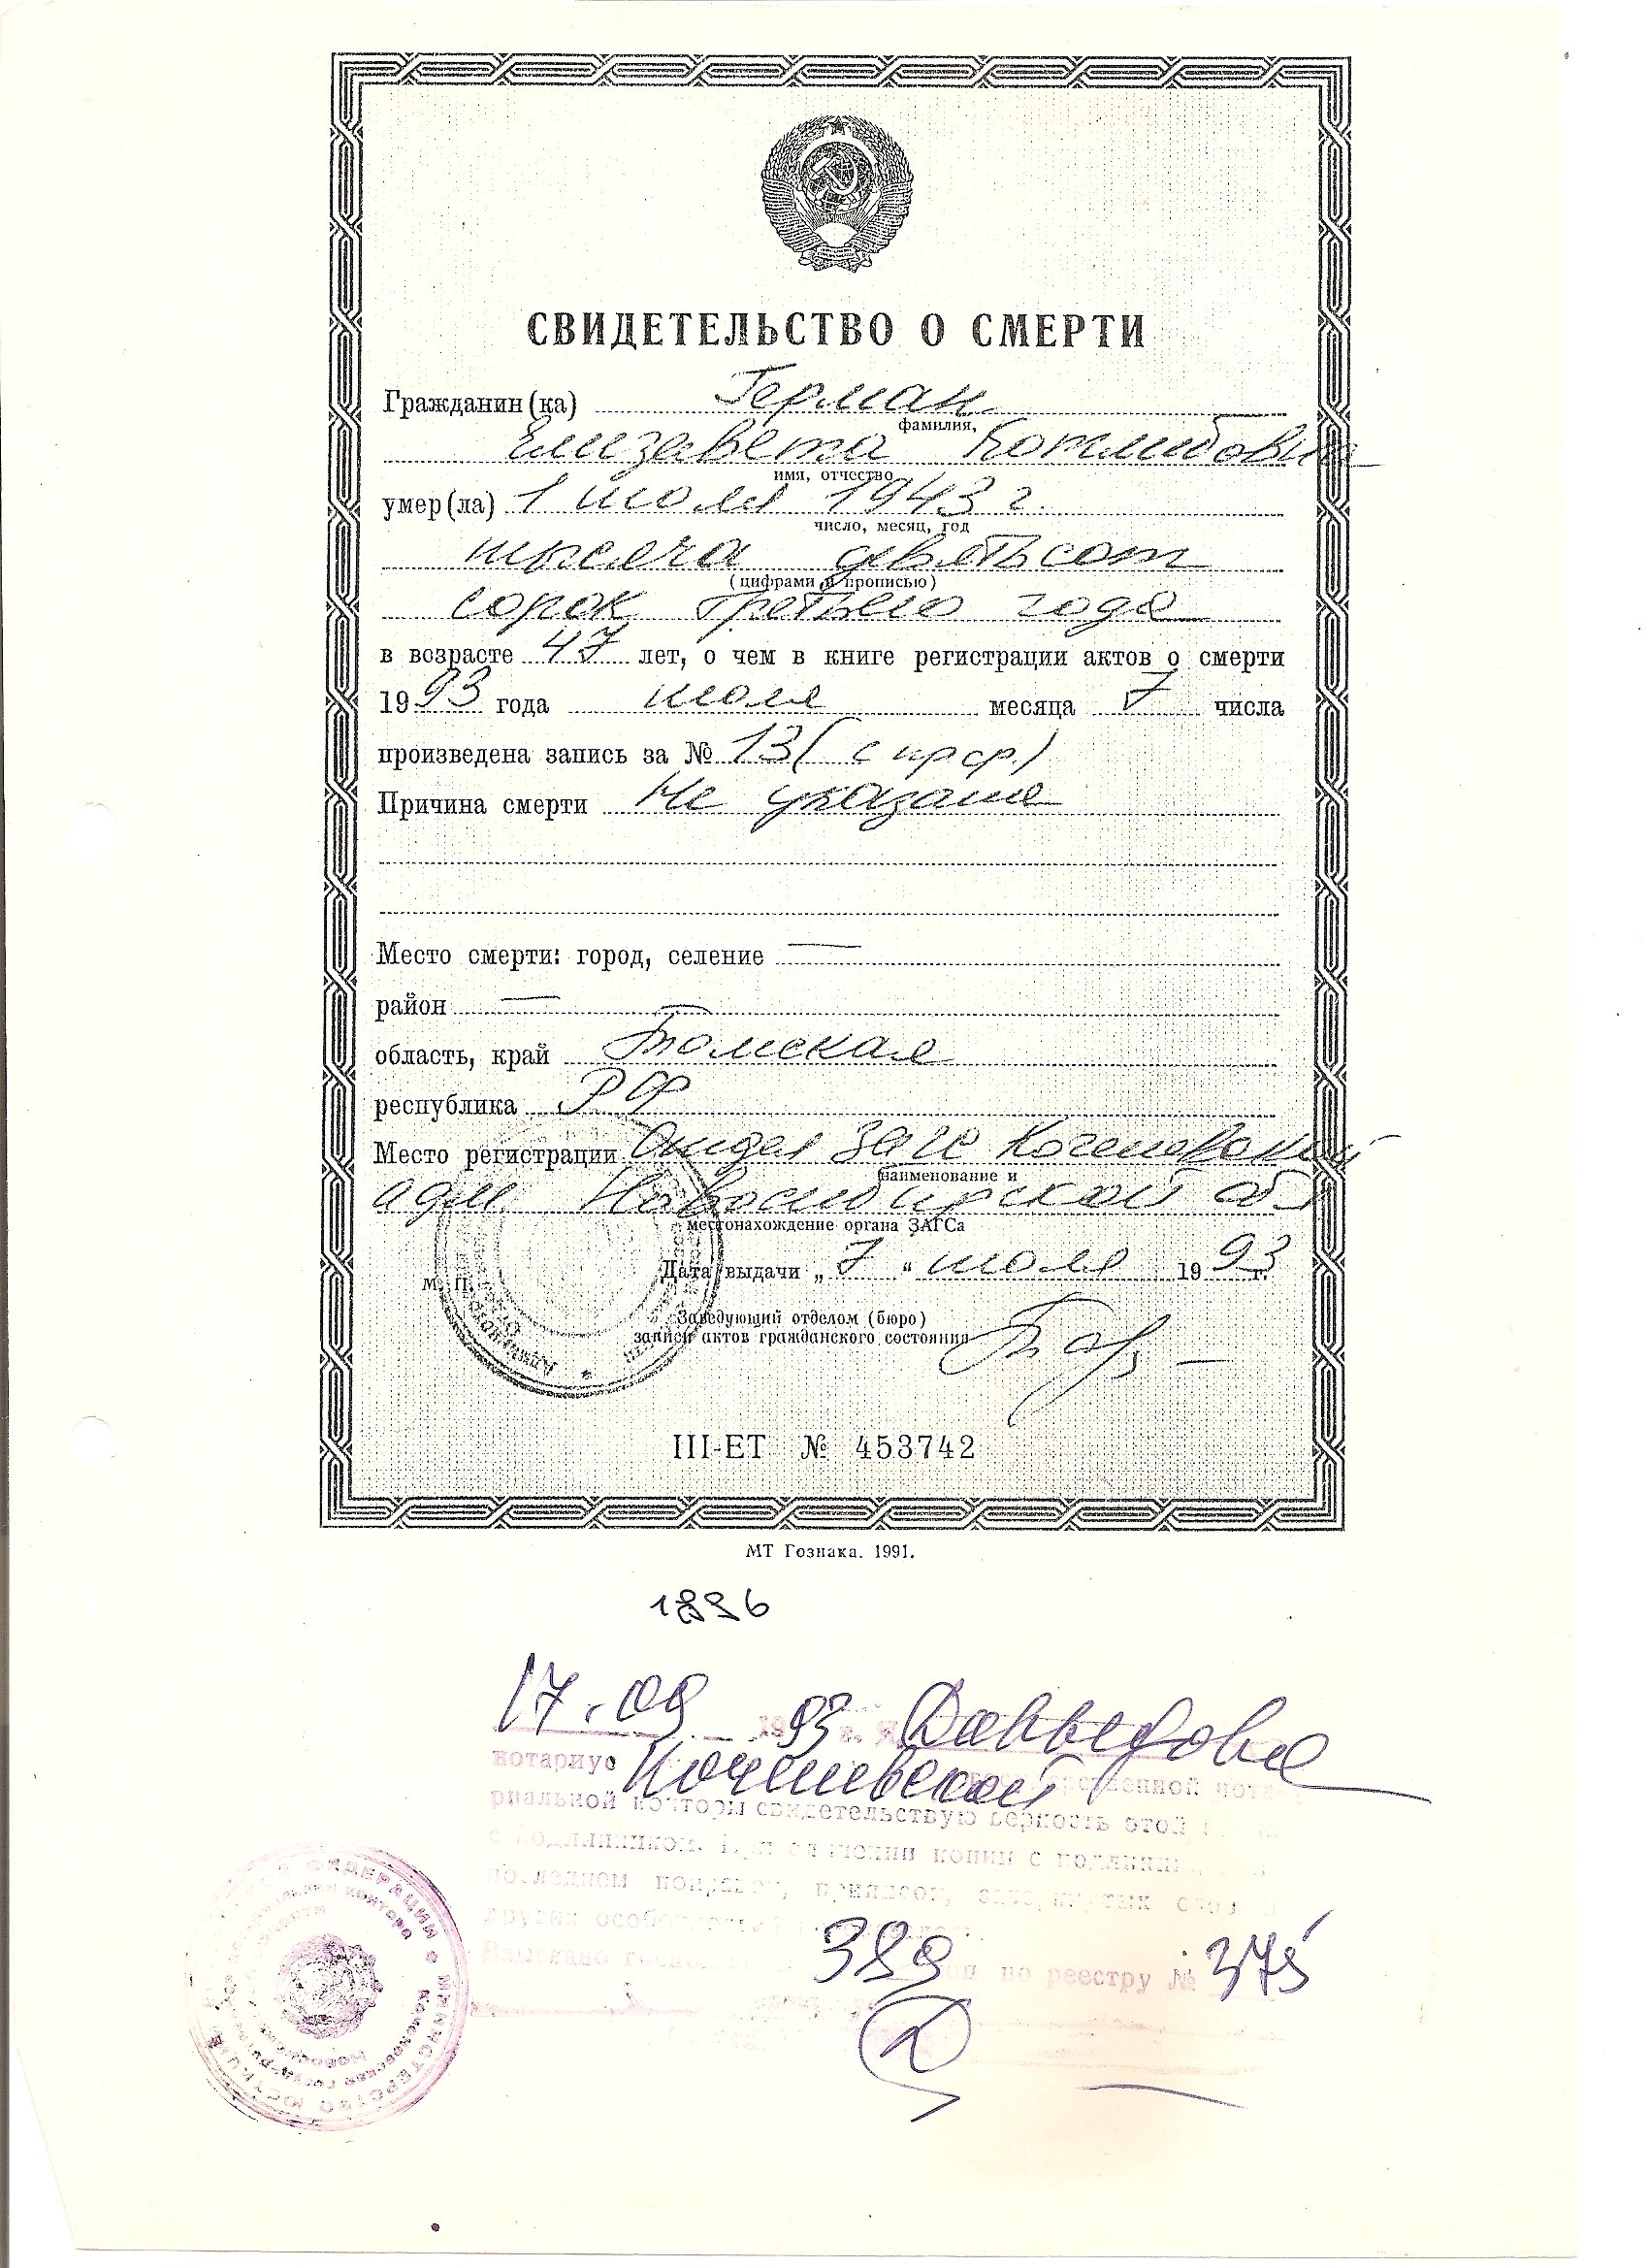 СВИДЕТЕЛЬСТВО О СМЕРТИ
Гражданин(ка) Герман
фамилия,
Елизавета Готлибовна
имя, отчество
умер(ла) 1 июля 1943 г.
число, месяц, год
тысяча девятьсот
(цифрами и прописью)
сорок третьего года
в возрасте 47 лет, о чем в книге регистрации актов о смерти
1993 года июля месяца 7 числа
произведена запись за № 13(
Причина смерти Не указана
Место смерти: город, селение —
район —
область, край Томская
республика РФ
Место регистрации Отдел ЗАГС Коченевской
наименование и
адм. Новосибирской об
местонахождение органа ЗАГСа
Дата выдачи „ 7 “ июля 1993 г.
М. П.
Заведующий отделом (бюро)
записи актов гражданского состояния
III-ЕТ № 453742
МТ Гознака. 1991.
1896
17.09 1993 г. Я Давыдова
нотариус Коченевской государственной нота
риальной конторы свидетельствую верность этой
с подлинником. При сличении копии с подлинником
последнем поправок, приписок, слов и
других особенностей
Взыскано 389 по реестру № 375
МИНИСТЕРСТВО ЮСТИЦИИ ФЕДЕРАЦИИ
контора